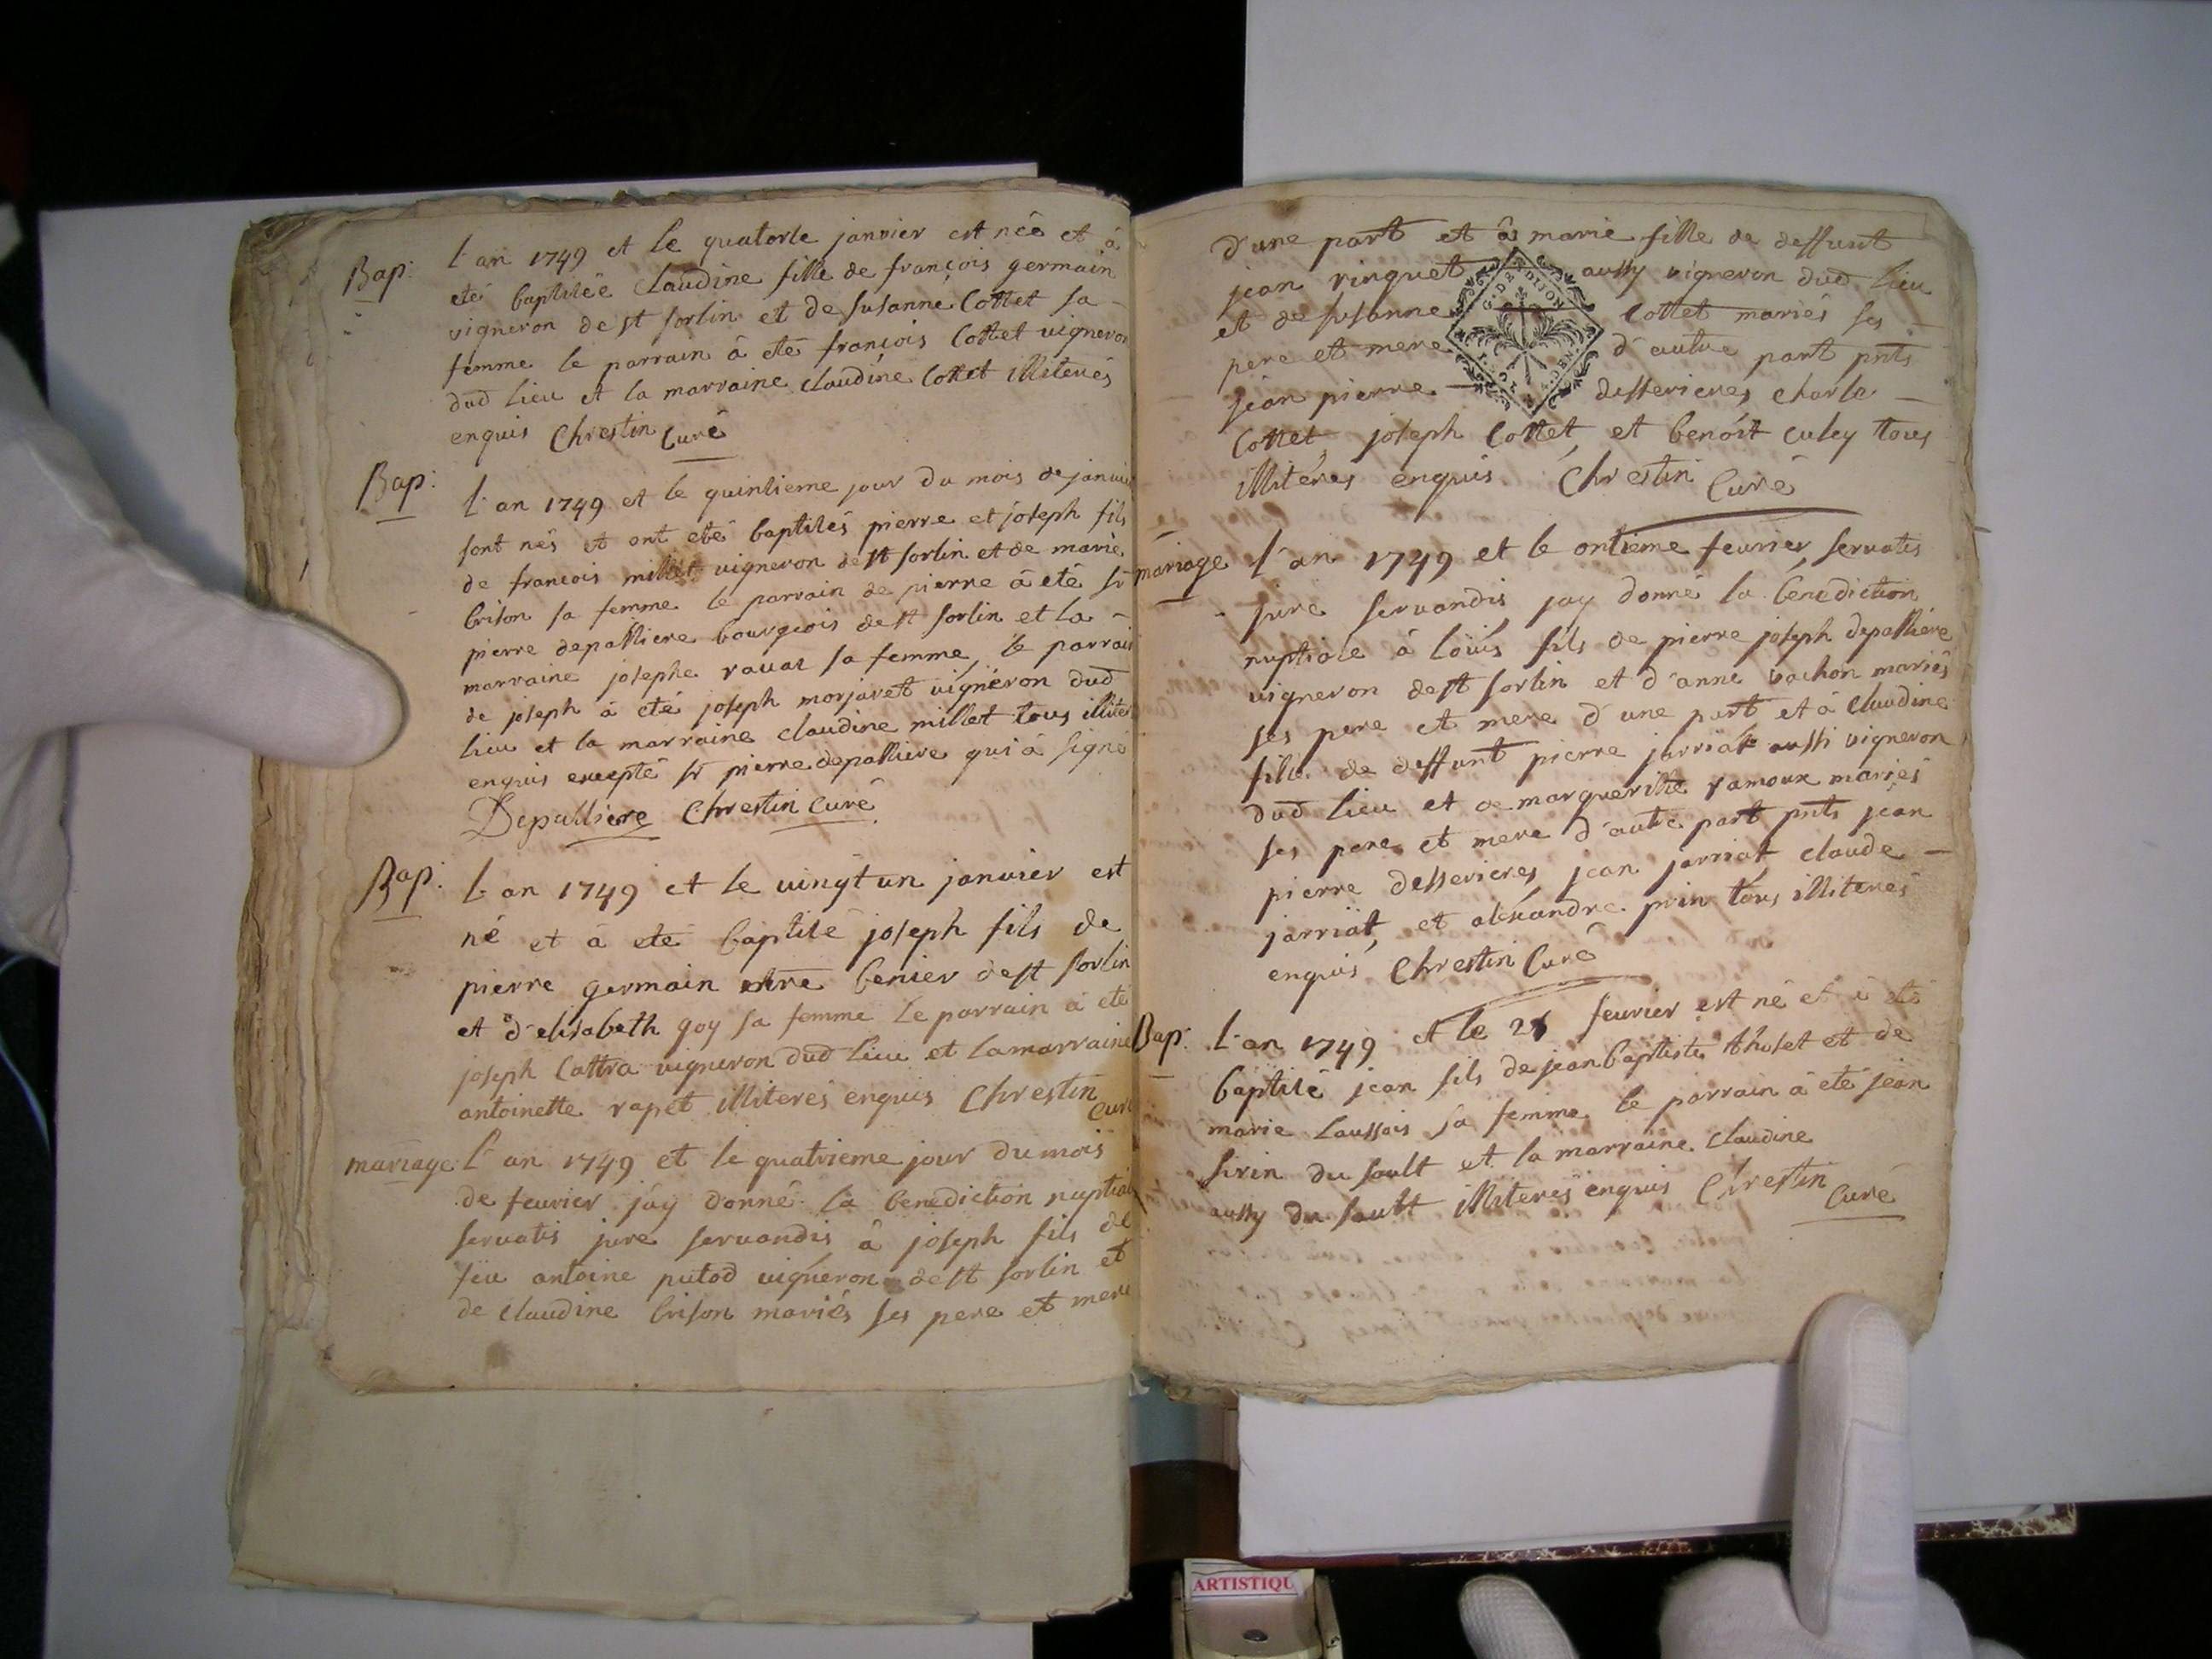 Bap: L'an 1749 et le quatorze janvier est née et à
eté baptisée Claudine fille de françois germain
vigneron de st sorlin et de susanne Cottet sa
femme le parrain à eté francois Cottet vigneron
dud lieu et la marraine claudine Cottet illiterés
enquis Chrestin Curé
Bap: L'an 1749 et le quinzieme jour du mois de janvier
sont nés et ont eté baptisés pierre et joseph fils
de francois millet vigneron de st sorlin et de marie
brison sa femme le parrain de pierre à eté sr
pierre depalliere bourgeois de st sorlin et la
marraine josephe ravat sa femme, le parrain
de joseph à eté joseph morjaret vigneron dud
lieu et la marraine claudine millet tous illiter
enquis excepté sr pierre depalliere qui à signé
Depalliere Chrestin Curé
Bap: L'an 1749 et le vingt un janvier est
né et à eté baptisé joseph fils de
pierre germain benier de st sorlin
et d'elisabeth goy sa femme le parrain à eté
joseph Cattra vigneron dud lieu et la marraine
antoinette rapet illiterés enquis Chrestin
Curé
mariage L'an 1749 et le quatrieme jour du mois
de feurier j'ay donné la benediction nuptiale
servatis jure servandis à joseph fils de
feu antoine putod vigneron de st sorlin et
de claudine brison mariés ses pere et mere
d'une part et à marie fille de deffunt
jean ringuet aussy vigneron dud lieu
et de susanne Cottet mariés ses
pere et mere d'autre part pnts
jean pierre desserieres, charle
Cottet, joseph Cottet, et benoit culey tous
illiterés enquis Chrestin Curé
G. D. DE DIJON
mariage L'an 1749 et le onzieme feurier, servatis
jure servandis, jay donné la benediction
nuptiale à loüis fils de pierre joseph depalliere
vigneron de st sorlin et d'anne vachon mariés
ses pere et mere d'une part et à claudine
fille de deffunt pierre jarriat aussi vigneron
dud lieu et de marguerite ramoux mariés
ses pere et mere d'autre part pnts jean
pierre desserieres, jean jarriat, claude
jarriat, et alexandre prin tous illiterés
enquis Chrestin Curé
Bap: L'an 1749 et le feurier est né et à eté
baptisé jean fils de jean baptiste tholet et de
marie laussois sa femme le parrain à eté jean
sirin du sault et la marraine claudine
aussy du sault illiterés enquis Chrestin
Curé
ARTISTIQU